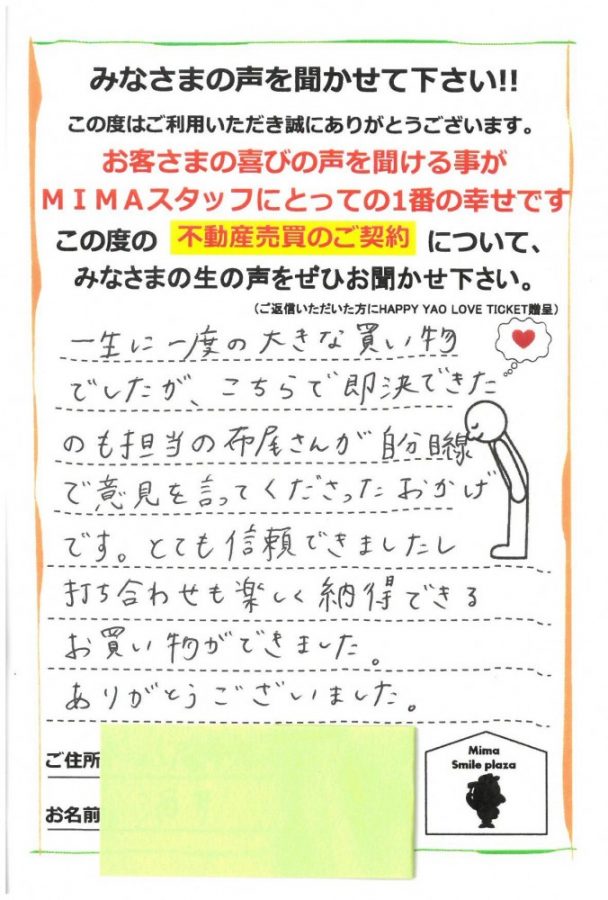 みなさまの声を聞かせて下さい!!
この度はご利用いただき誠にありがとうございます。
お客さまの喜びの声を聞ける事が
MIMAスタッフにとっての1番の幸せです
この度の 不動産売買のご契約 について、
みなさまの生の声をぜひお聞かせ下さい。
(ご返信いただいた方にHAPPY YAO LOVE TICKET贈呈)
一生に一度の大きな買い物
でしたが、こちらで即決できた
のも担当の布尾さんが自分目線
で意見を言ってくださったおかげ
です。とても信頼できましたし
打ち合わせも楽しく納得できる
お買い物ができました。
ありがとうございました。
ご住所
お名前
Mima
Smile plaza